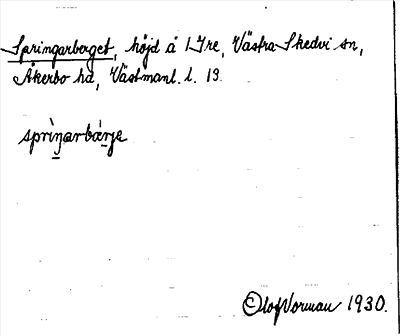 Springarberget, höjd å Yre, Västra Skedvi sn,
Åkerbo hd, Västmanl. l. 13.
sprìŋarbærje
Olof Vorman 1930.